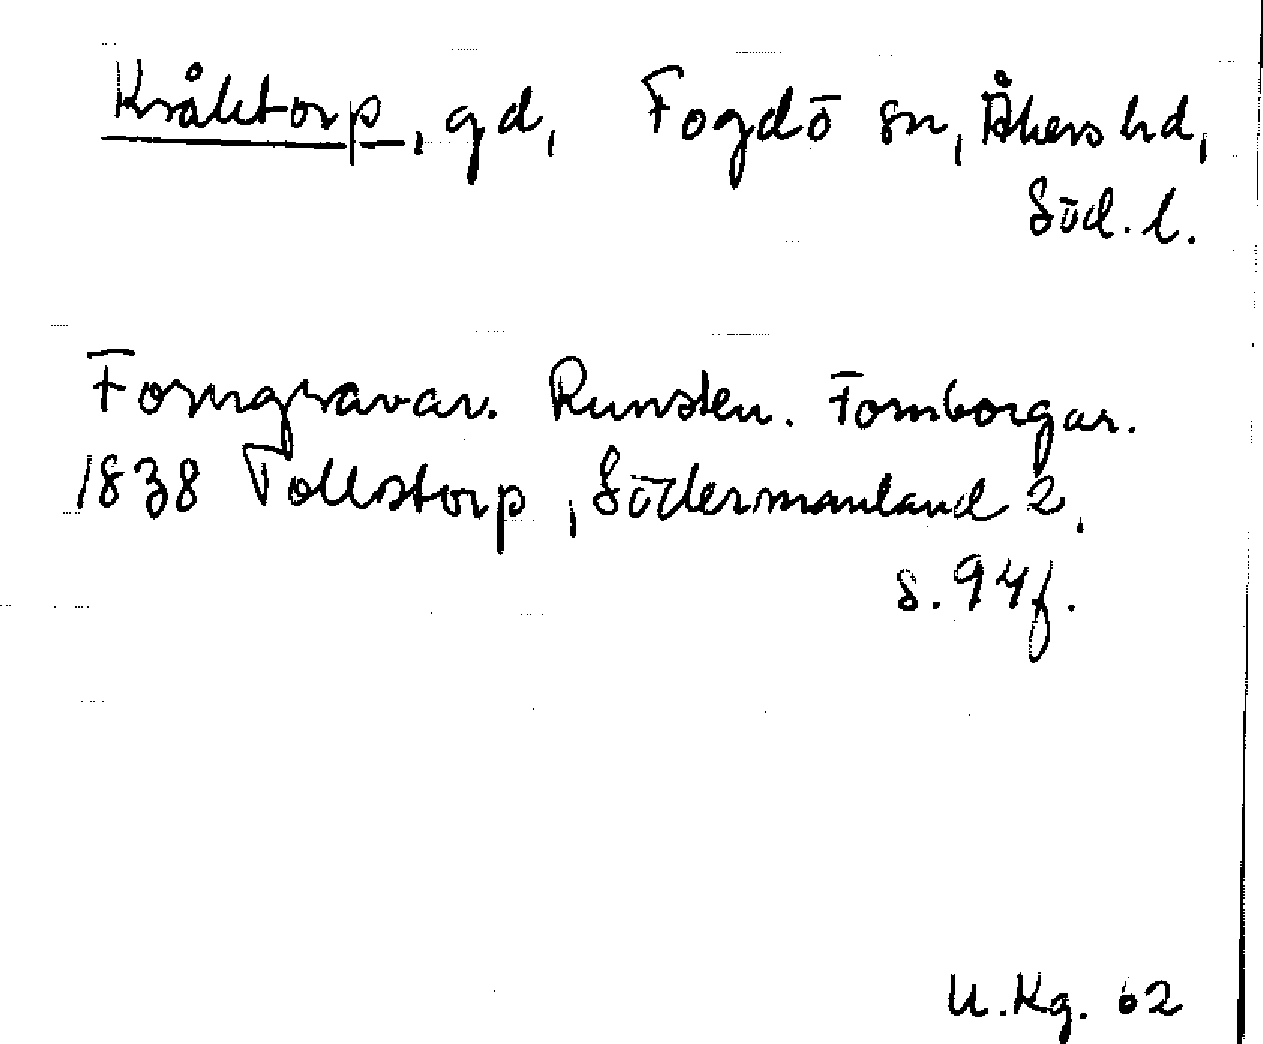 Kråktorp, gd, Fogdö sn, Åkers hd,
Söd. l.
Forngravar. Runsten. Fornborgar.
1838 Tollstorp, Södermanland 2,
s. 94f.
U. Kg. 62